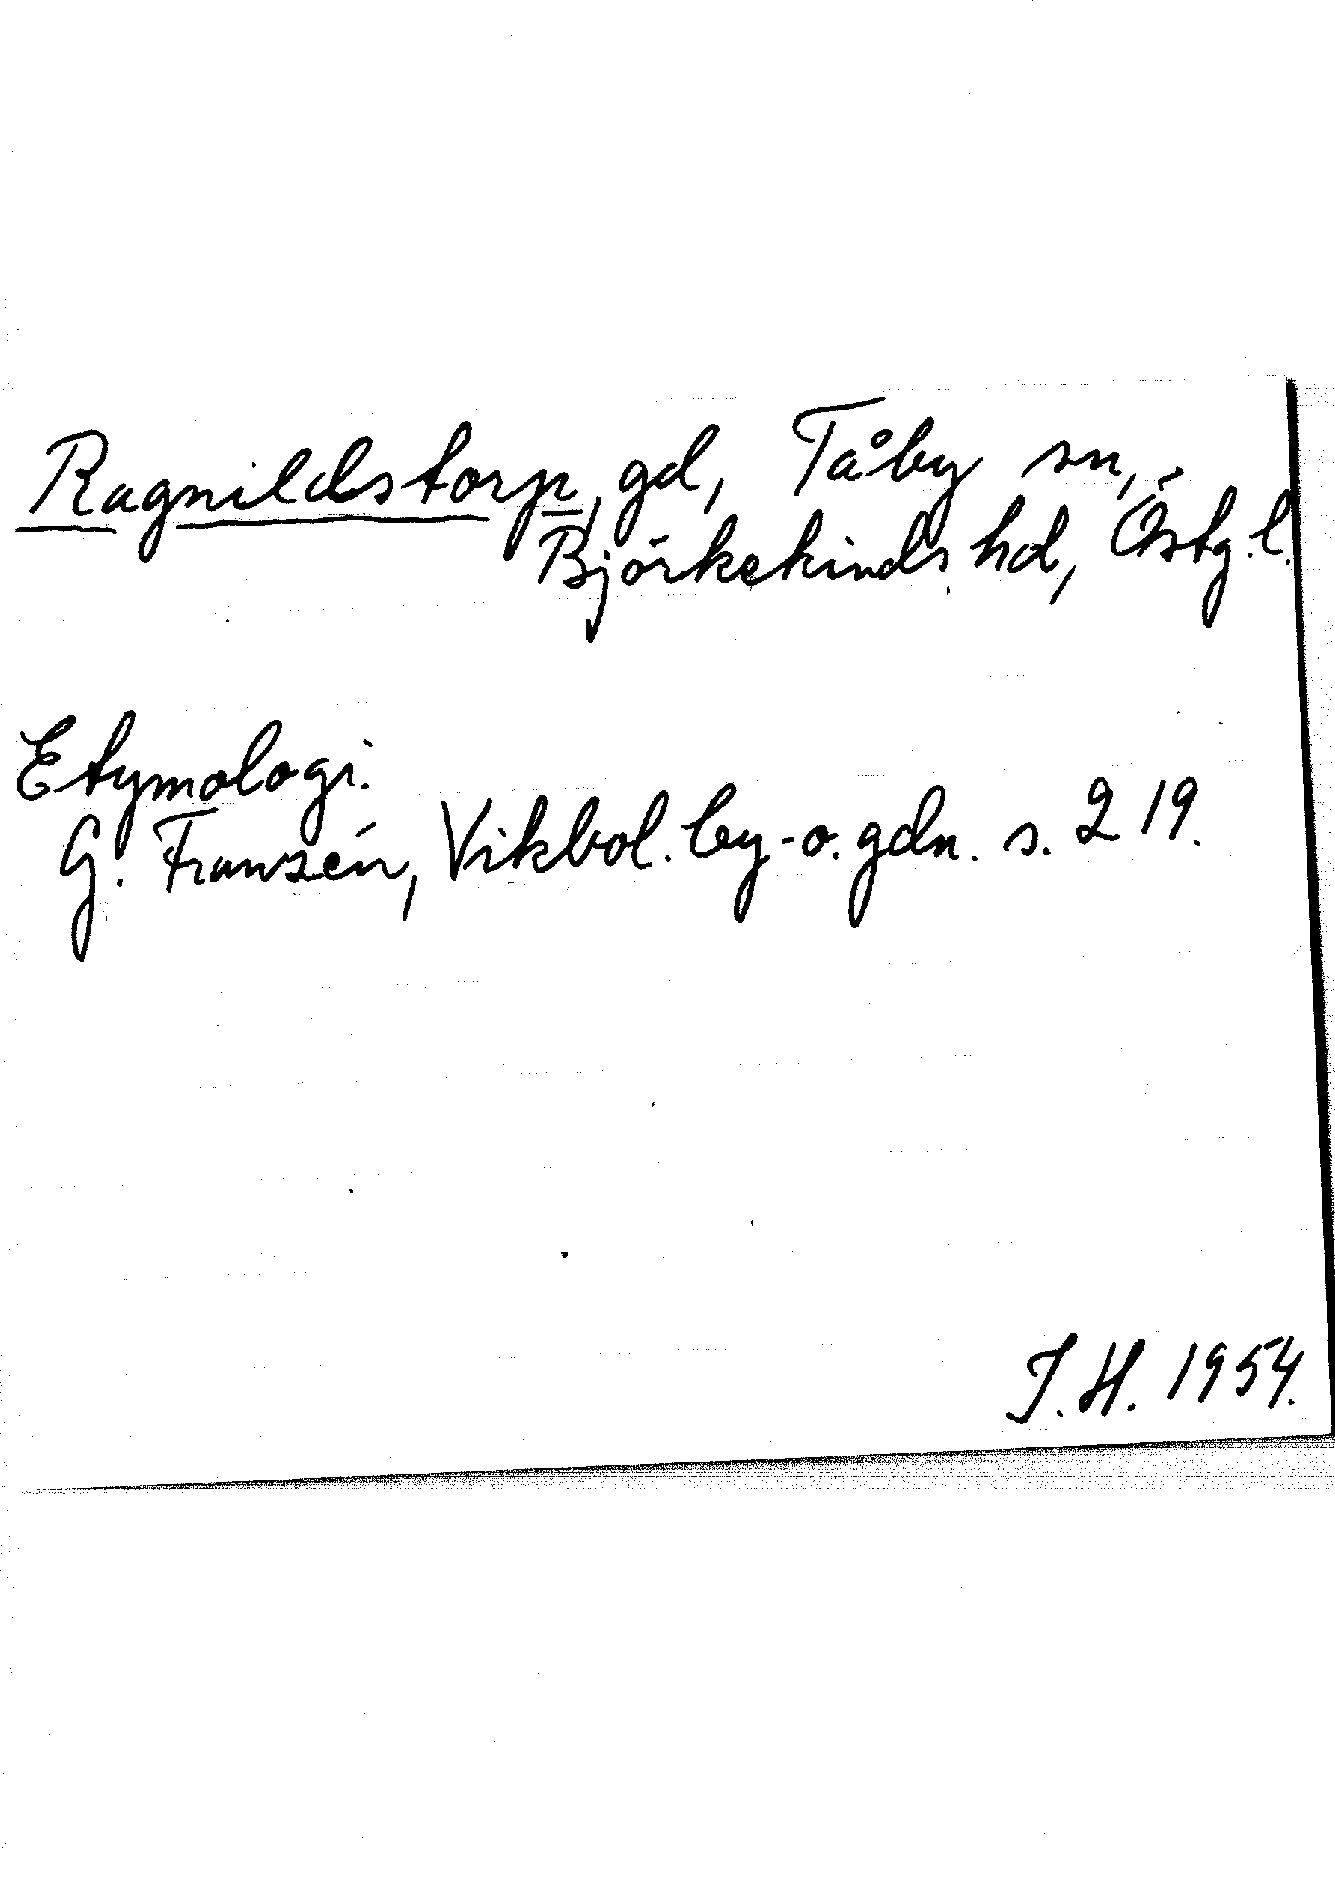 Ragnildstorp, gd, Tåby sn,
Björkekinds hd, Östg.l.
Etymologi.
G. Franzén, Vikbol. by- o. gdn. s. 219.
J. H. 1954.